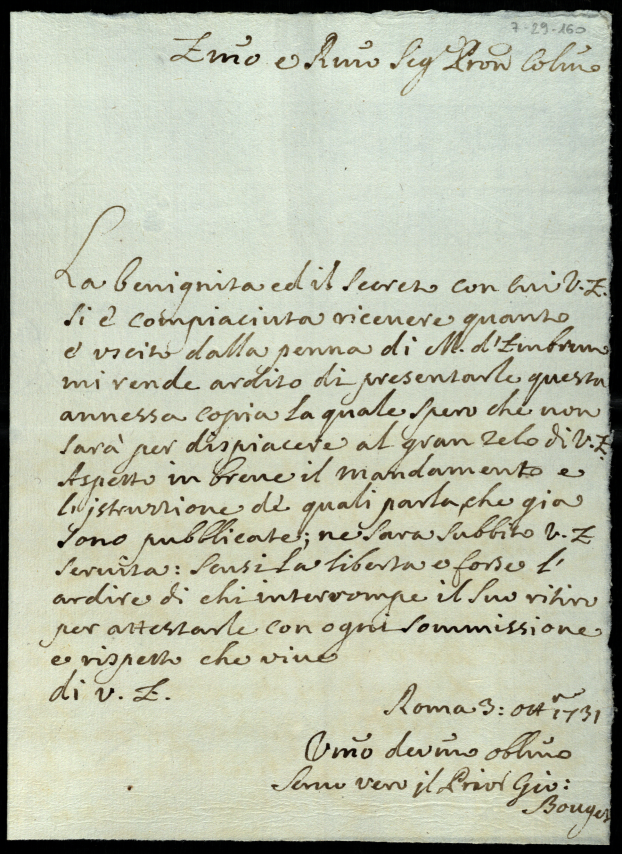 7-29-160
Emo e Rmo Sig.r Pron Colmo
La benignita ed il secreto con cui V. E.
si è compiaciuta riceuere quanto
è vscito dalla penna di M. d'Embrun
mi rende ardito di presentarle questa
annessa copia la quale spero che non
sarà per dispiacere al gran zelo di V. E.
Aspetto in breue il mandamento e
l'istruzione de quali parla, che gia
sono pubblicate; ne sara subbito V. E
seruita: scusi la liberta e forse l'
ardire di chi interrompe il suo ritiro
per attestarle con ogni sommissione
e rispetto che viue
di V. E.
Roma 3: ott.re 1731
Vmo deumo obblmo
Seruo vero il Gio:
Bouget